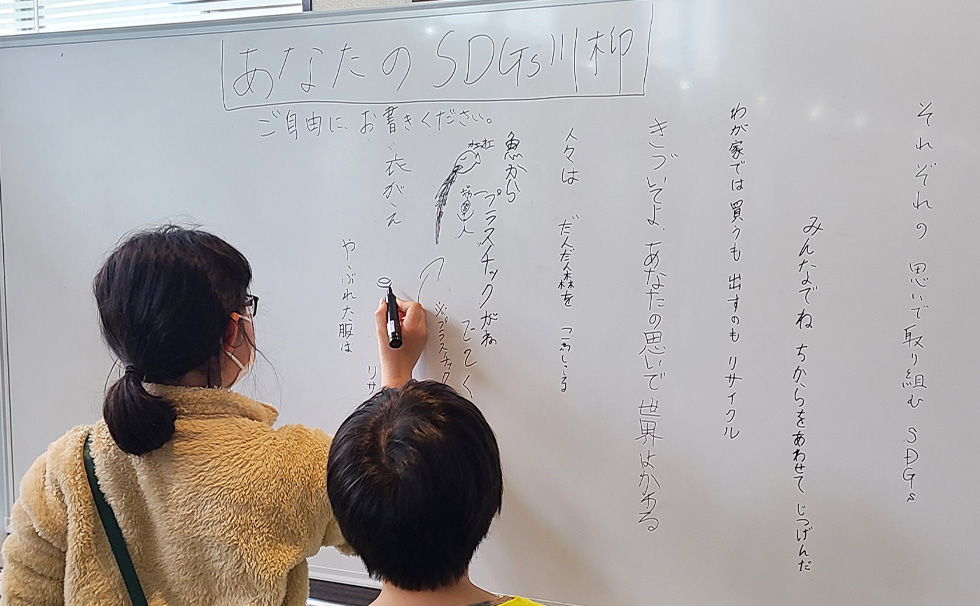 あなたのSDGs川柳
ご自由に、お書きください。
それぞれの 思いで取り組む SDGs
みんなでね ちからをあわせて じつげんだ
わが家では 買うも 出すのも リサイクル
きづいてよ、あなたの思いで 世界はかわる
人々は だんだん森を こわしてる
魚から
プラスチックがね
でてく
※プラスチック
人
衣がえ
やぶれた服は
リサ